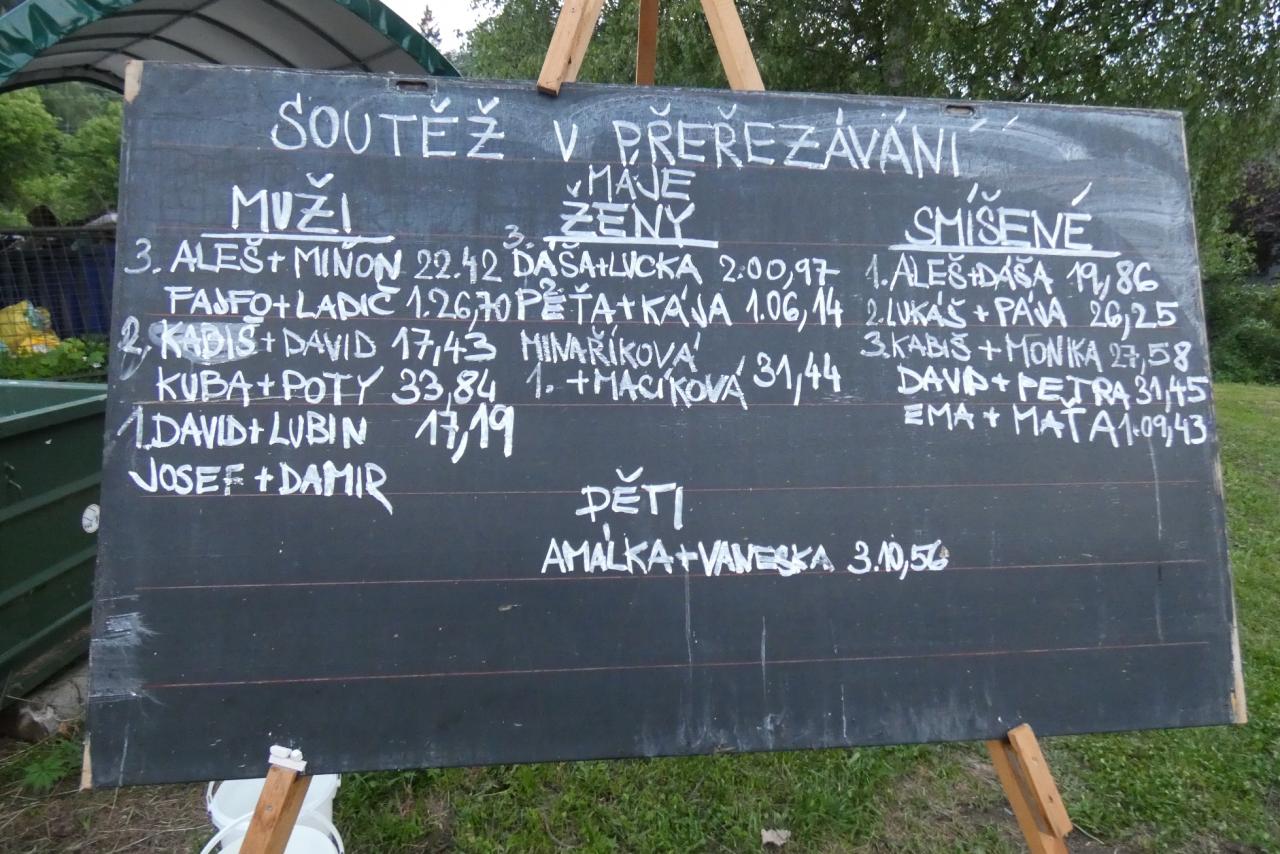 SOUTĚŽ V PŘEŘEZÁVÁNÍ
MÁJE
MUŽI
3. ALEŠ + MIŇON 22.42
FAJFO + LADIČ 1.26,70
2. KABIŠ + DAVID 17,43
KUBA + POTY 33,84
1. DAVID + LUBIN 17,19
JOSEF + DAMIR
ŽENY
3. DÁŠA + LUCKA 2.00,97
2. PÉŤA + KÁJA 1.06,14
MINAŘÍKOVÁ
1. + MACÍKOVÁ 31,44
SMÍŠENÉ
1. ALEŠ + DÁŠA 19,86
2. LUKÁŠ + PÁJA 26,25
3. KABIŠ + MONIKA 27,58
DAVID + PETRA 31,45
EMA + MAŤA 1.09,43
DĚTI
AMÁLKA + VANESKA 3.10,56